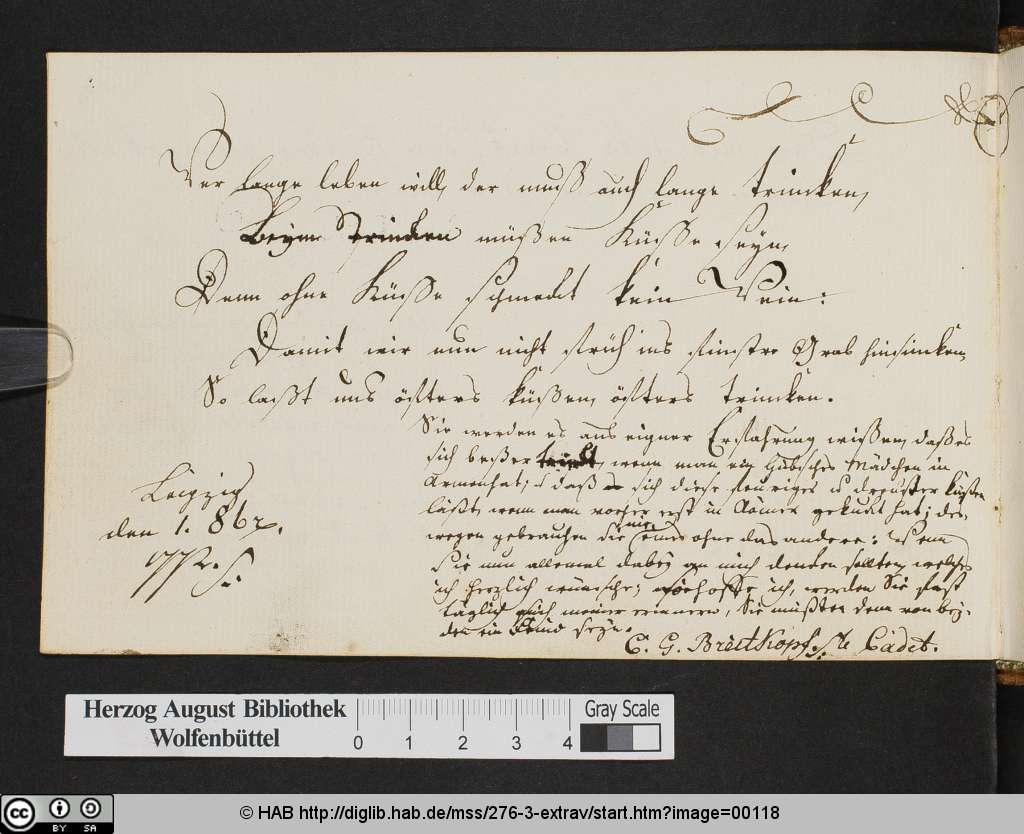 Wer lange leben will, der muß auch lange trincken,
Beym Trincken müßen Küsse seyn,
Denn ohne Küsse schmeckt kein Wein:
Damit wir nun nicht früh ins finstre Grab hinsincken,
So laßt uns öfters küßen, öfters trincken.
Sie werden es aus eigner Erfahrung wißen, daß es
sich beßer trinckt, wenn man ein hübsches Mädchen in
Armen hat; u daß sich diese feuriges u küßen
läßt, wenn man vorher erst in Römer gekuckt hat; des-
wegen gebrauchen Sie nie eines ohne das andere: Wenn
Sie nun allemal dabey an mich dencken sollten, welches
ich herzlich wünsche; hoffe ich, werden Sie fast
täglich sich meiner erinnern, Sie müßten denn von bey-
den ein Feind seyn.
Leipzig
den 1. 8br.
1772.
C. G. Breitkopf. le Cadet.
Herzog August Bibliothek
Wolfenbüttel
0 1 2 3 4
Gray Scale
CC BY SA
© HAB http://diglib.hab.de/mss/276-3-extrav/start.htm?image=00118